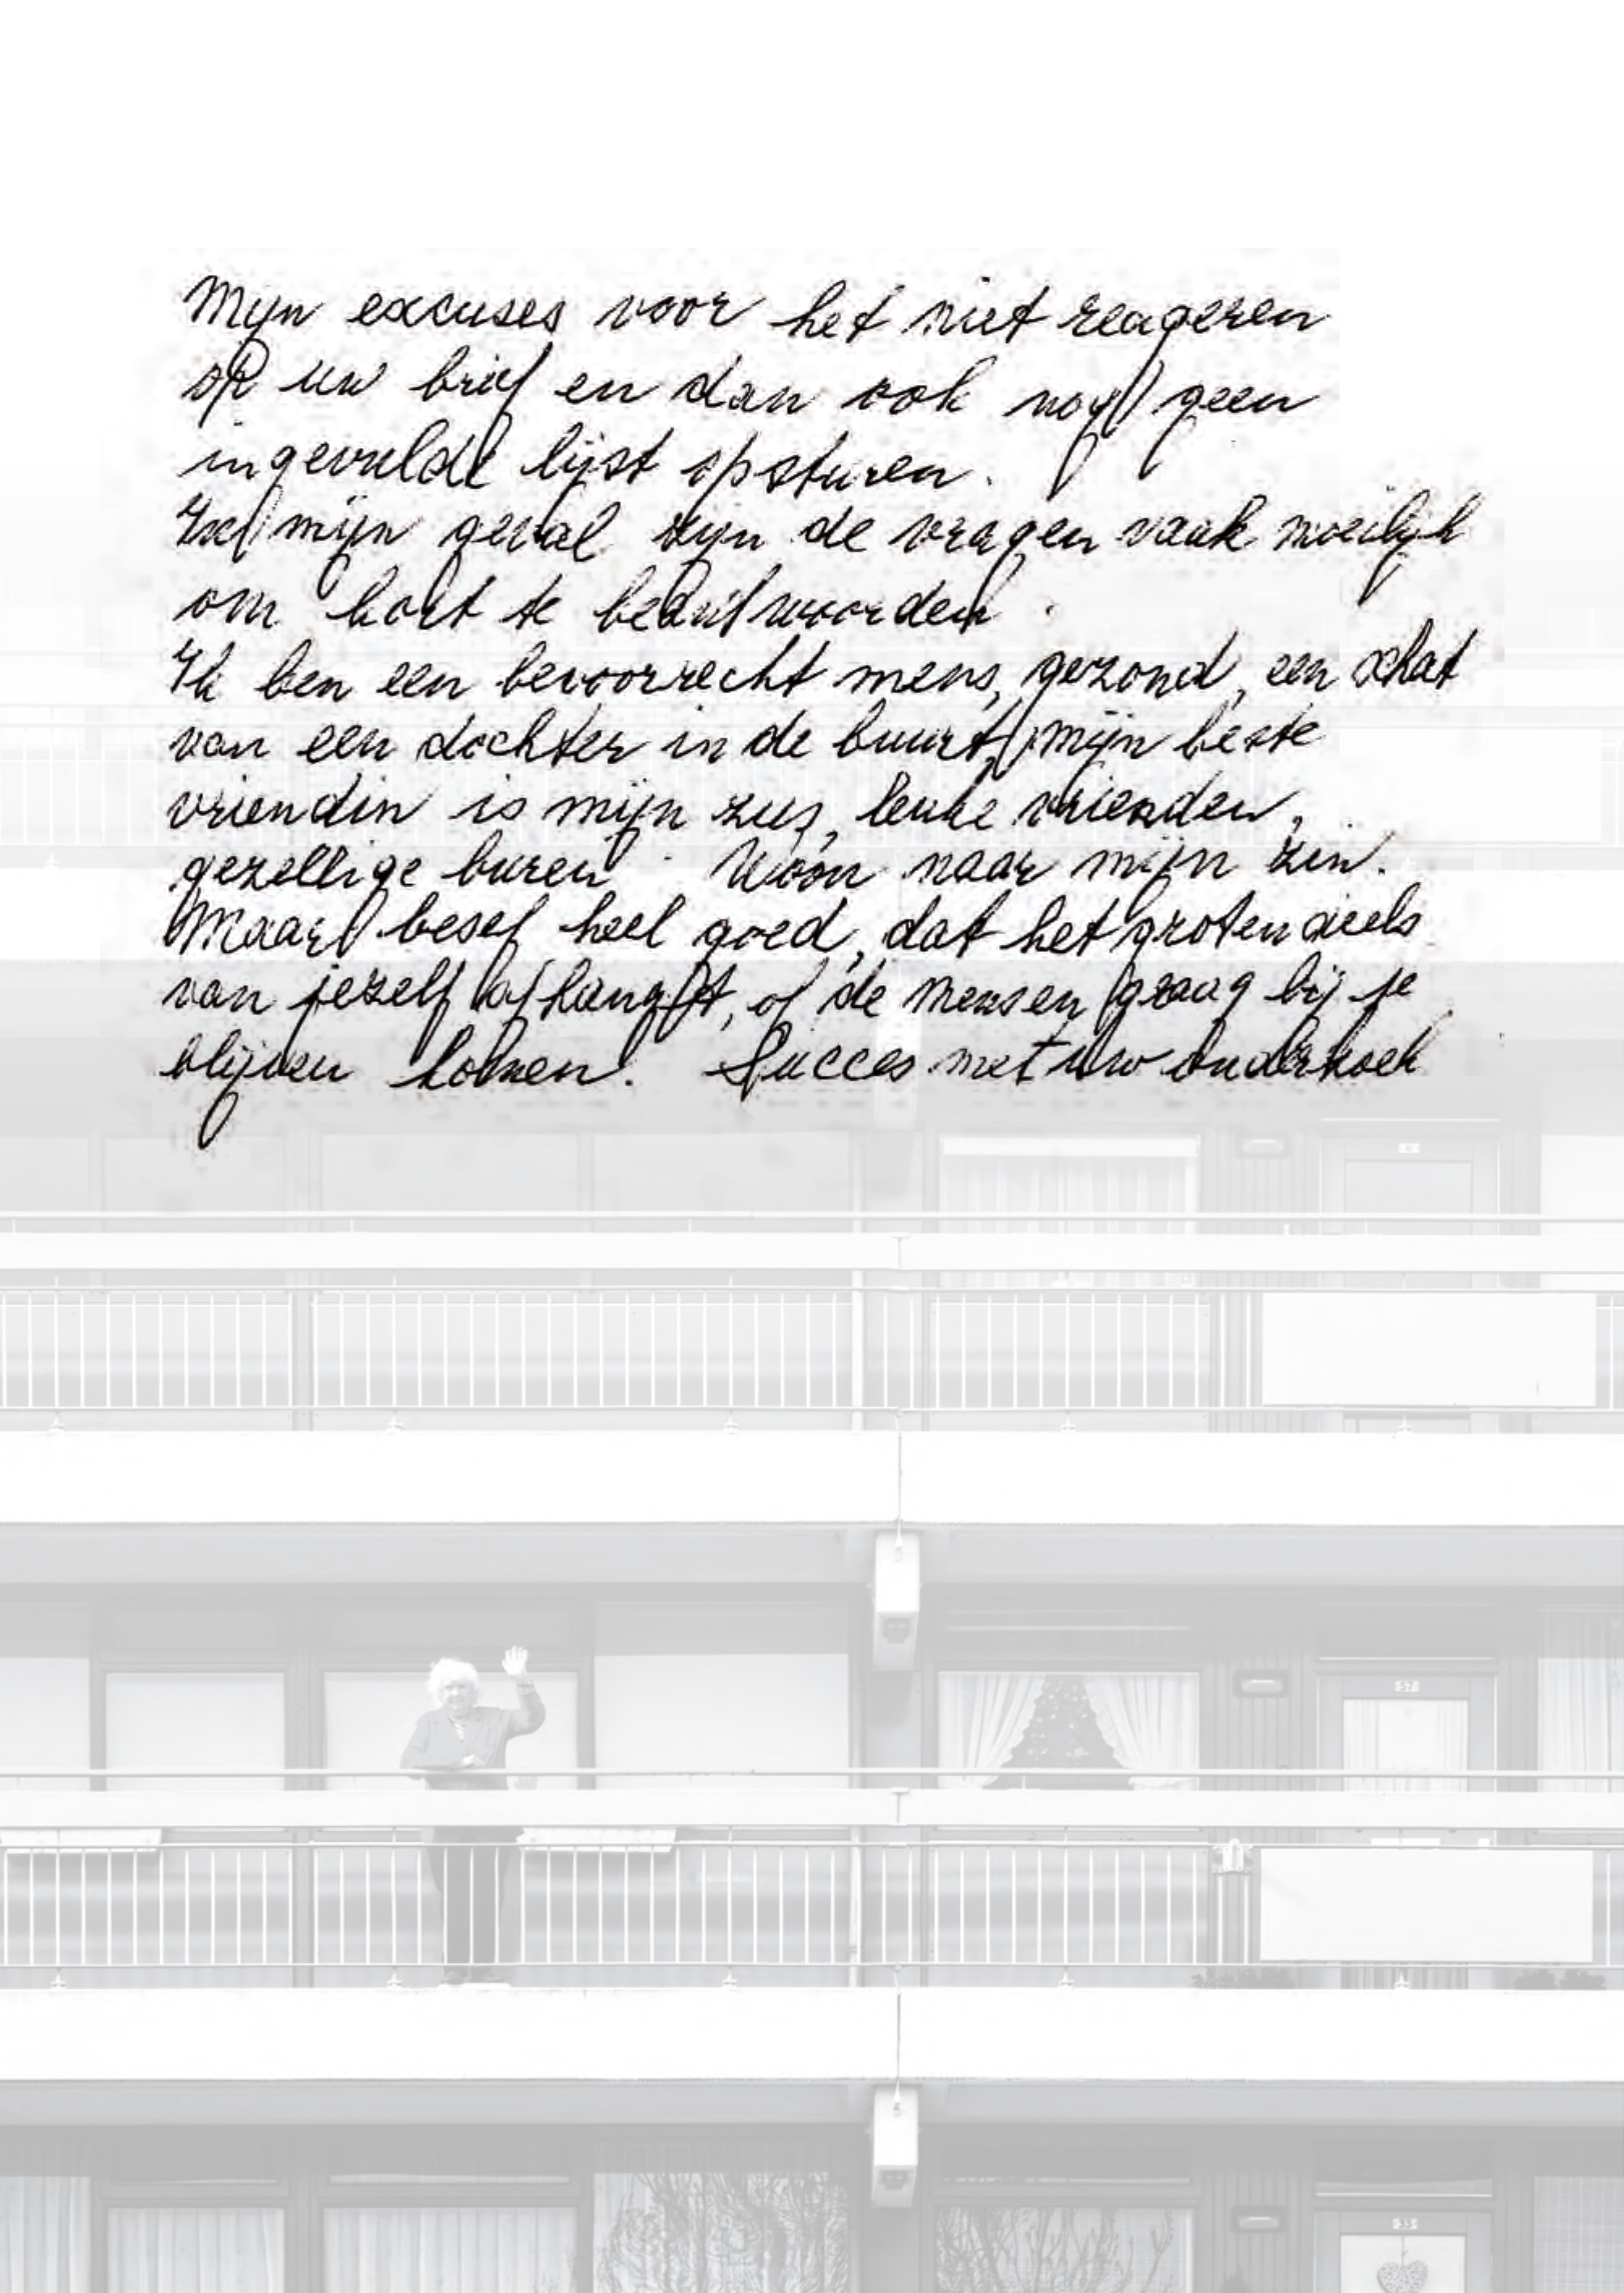 Mijn excuses voor het niet reageren
op uw brief en dan ook nog geen
ingevulde lijst opsturen.
In mijn geval zijn de vragen vaak moeilijk
om kort te beantwoorden.
Ik ben een bevoorrecht mens, gezond, een schat
van een dochter in de buurt, mijn beste
vriendin is mijn zus, leuke vrienden,
gezellige buren. Woon naar mijn zin.
Maar besef heel goed, dat het grotendeels
van jezelf afhangt, of de mensen graag bij je
blijven komen. Succes met uw onderzoek
57
33